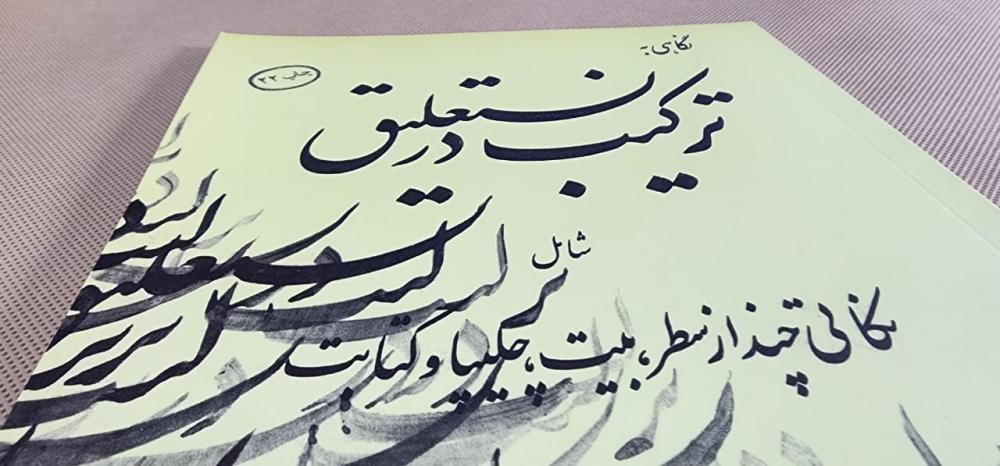 نگاهی به
ترکیب در نستعلیق
چاپ ۲۲
شامل
نکاتی چند از سطر، بیت، چلیپا و کتابت